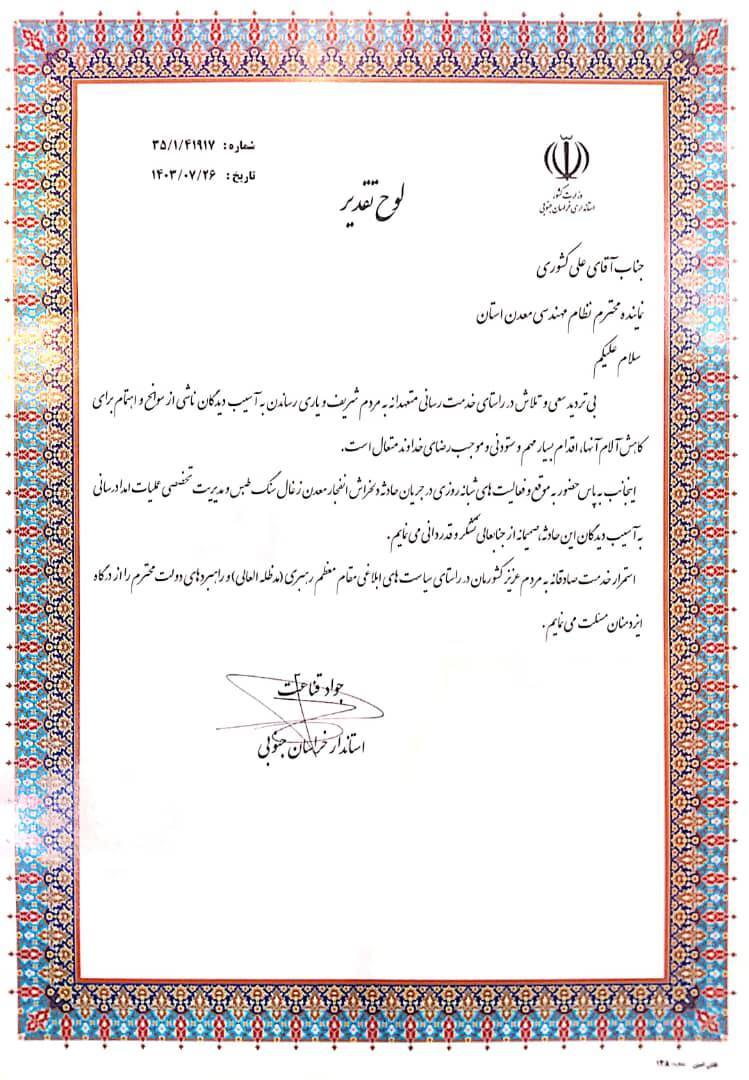 شماره: ۳۵/۱/۴۱۹۱۷
تاریخ: ۱۴۰۳/۰۷/۲۶
وزارت کشور
استانداری خراسان جنوبی
لوح تقدیر
جناب آقای علی کشوری
نماینده محترم نظام مهندسی معدن استان
سلام علیکم
بی تردید سعی و تلاش در راستای خدمت رسانی متعهدانه به مردم شریف و یاری رساندن به آسیب دیدگان ناشی از سوانح و اهتمام برای
کاهش آلام آنها، اقدام بسیار مهم و ستودنی و موجب رضای خداوند متعال است.
اینجانب به پاس حضور به موقع و فعالیت های شبانه روزی در جریان حادثه دلخراش انفجار معدن زغال سنگ طبس و مدیریت تخصصی عملیات امدادرسانی
به آسیب دیدگان این حادثه، صمیمانه از جنابعالی تشکر و قدردانی می نمایم.
استمرار خدمت صادقانه به مردم عزیز کشورمان در راستای سیاست های ابلاغی مقام معظم رهبری (مدظله العالی) و راهبردهای دولت محترم را از درگاه
ایزد منان مسئلت می نمایم.
جواد قناعت
استاندار خراسان جنوبی
۱۴۸